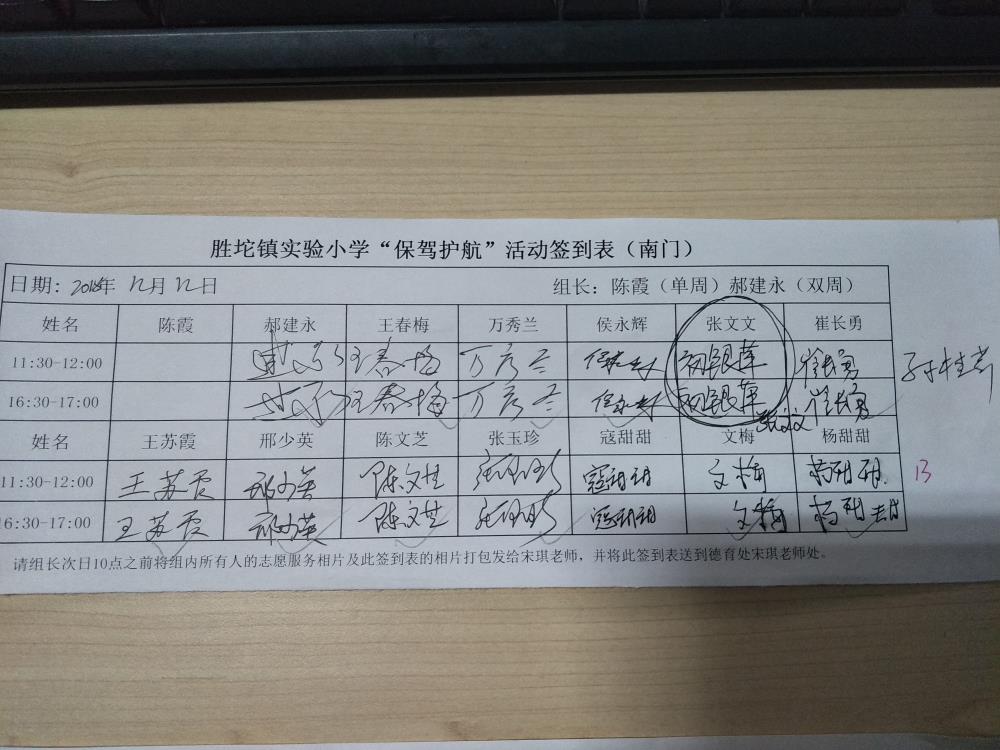 胜坨镇实验小学“保驾护航”活动签到表（南门）
日期：2018年 12月 12日 组长：陈霞（单周）郝建永（双周）
姓名 陈霞 郝建永 王春梅 万秀兰 侯永辉 张文文 崔长勇
11:30-12:00 王春梅 万秀兰 侯永辉 初银莲 崔长勇
16:30-17:00 王春梅 万秀兰 侯永辉 初银莲 崔长勇
张文文
姓名 王苏霞 邢少英 陈文芝 张玉珍 寇甜甜 文梅 杨甜甜
11:30-12:00 王苏霞 邢少英 陈文芝 张玉珍 寇甜甜 文梅 杨甜甜 13
16:30-17:00 王苏霞 邢少英 陈文芝 张玉珍 寇甜甜 文梅 杨甜甜
请组长次日10点之前将组内所有人的志愿服务相片及此签到表的相片打包发给宋琪老师，并将此签到表送到德育处宋琪老师处。